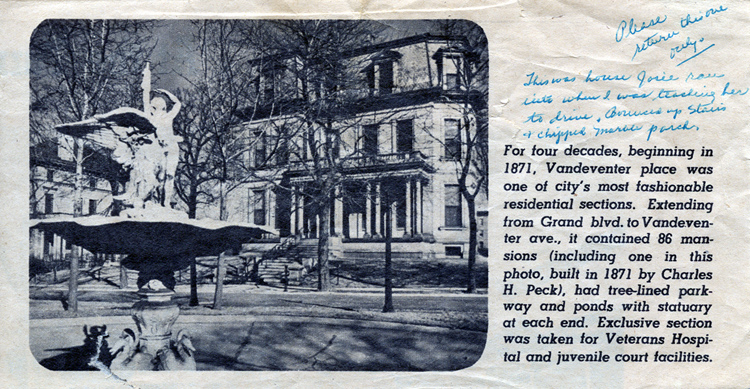 Please
return this one
only.
This was house Josie ran
into when I was teaching her
to drive. Bounced up Stairs
& chipped marble porch.
For four decades, beginning in
1871, Vandeventer place was
one of city's most fashionable
residential sections. Extending
from Grand blvd. to Vandeven-
ter ave., it contained 86 man-
sions (including one in this
photo, built in 1871 by Charles
H. Peck), had tree-lined park-
way and ponds with statuary
at each end. Exclusive section
was taken for Veterans Hospi-
tal and juvenile court facilities.